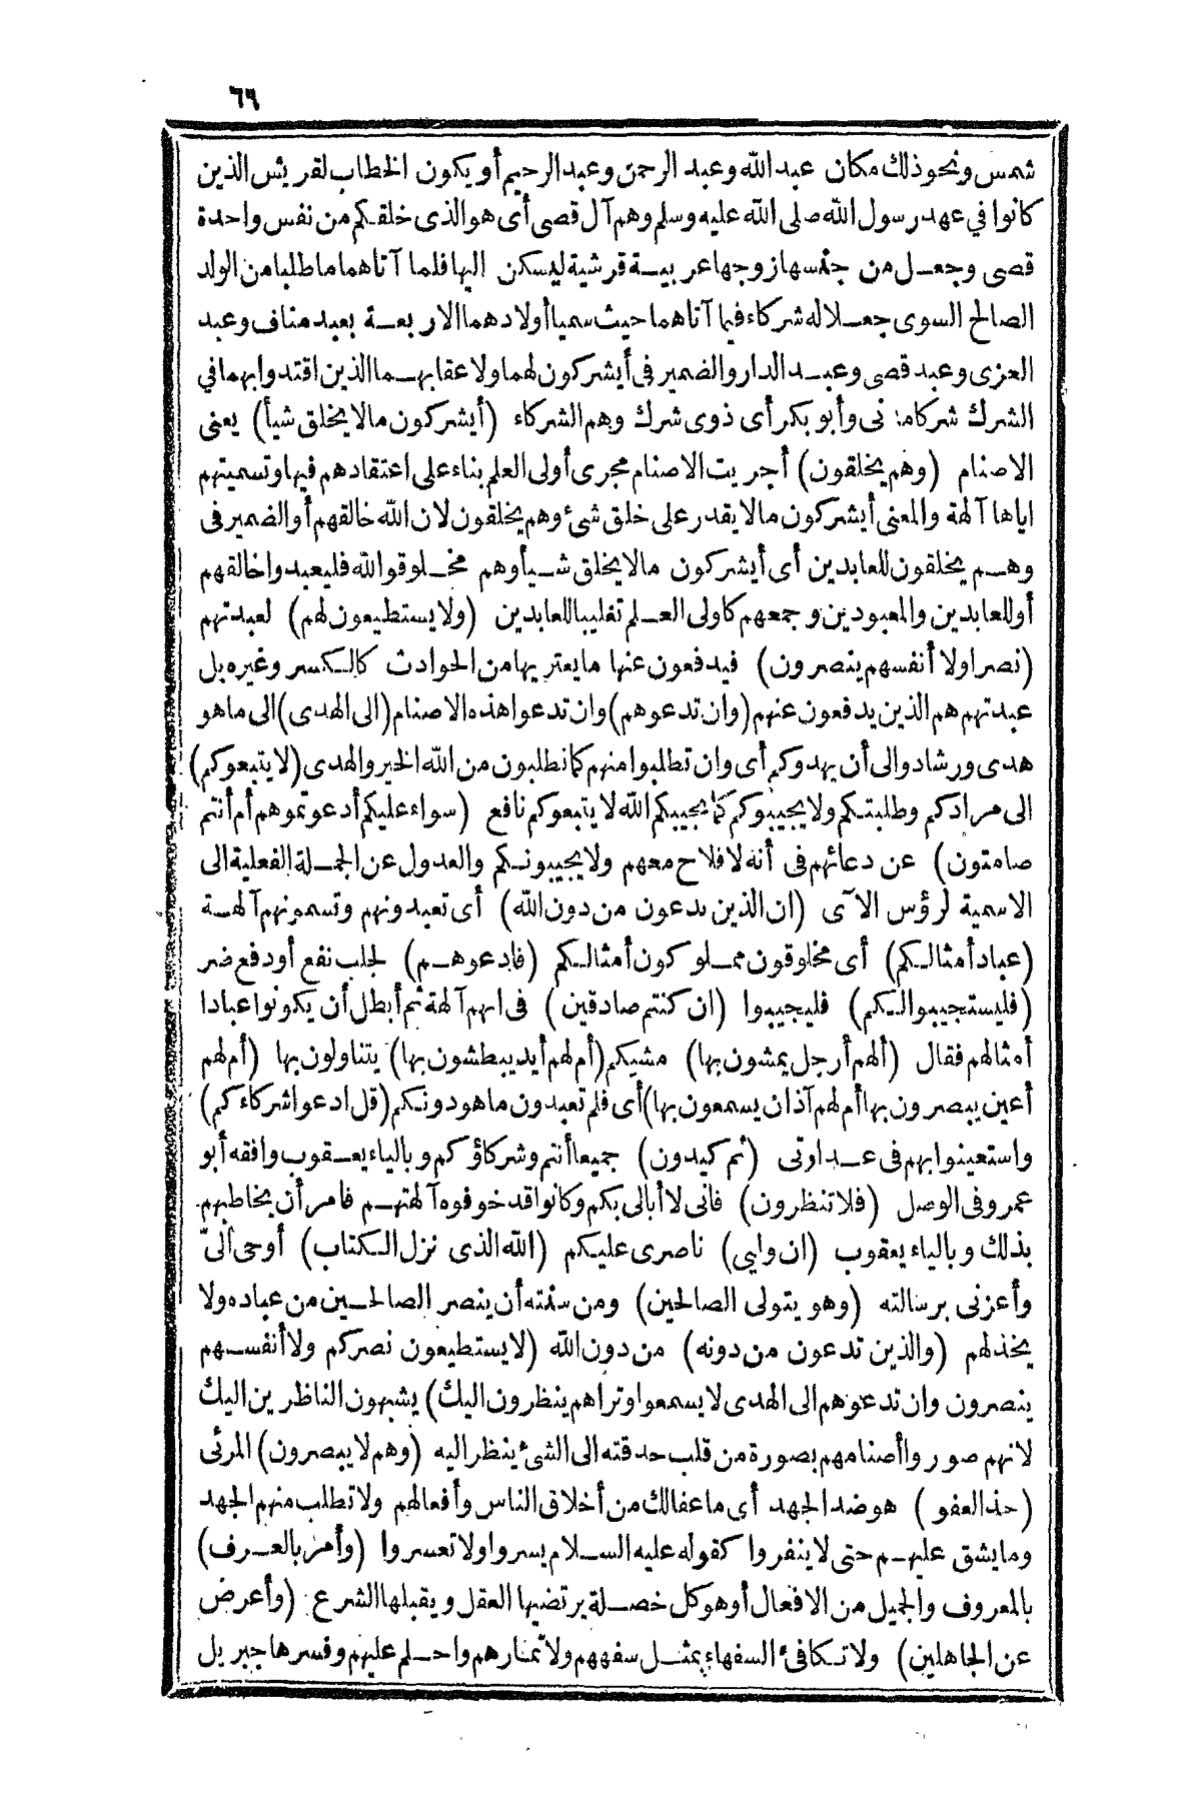 ٦٩
شمس ونحو ذلك مكان عبد الله وعبد الرحمن وعبد الرحيم أو يكون الخطاب لقريش الذين
كانوا في عهد رسول الله صلى الله عليه وسلم وهم آل قصى أى هو الذى خلقكم من نفس واحدة
قصى وجعل من جنسها زوجها عربية قرشية ليسكن اليها فلما آتاهما ما طلبا من الولد
الصالح السوى جعلا له شركاء فيما آتاهما حيث سميا أولادهما الاربعة بعبد مناف وعبد
العزى وعبد قصى وعبد الدار والضمير فى أيشركون لهما ولاعقابهما الذين اقتدوا بهما في
الشرك شركا مدنى وأبو بكر أى ذوى شرك وهم الشركاء (أيشركون مالا يخلق شيأ) يعنى
الاصنام (وهم يخلقون) أجريت الاصنام مجرى أولى العلم بناء على اعتقادهم فيها وتسميتهم
اياها آلهة والمعنى أيشركون مالا يقدر على خلق شئ وهم يخلقون لان الله خالقهم أو الضمير فى
وهم يخلقون للعابدين أى أيشركون مالا يخلق شيأ وهم مخلوقو الله فليعبدوا خالقهم
أو للعابدين والمعبودين وجمعهم كاولى العلم تغليبا للعابدين (ولا يستطيعون لهم) لعبدتهم
(نصرا ولا أنفسهم ينصرون) فيدفعون عنها ما يعتريها من الحوادث كالكسر وغيره بل
عبدتهم هم الذين يدفعون عنهم (وان تدعوهم) وان تدعوا هذه الاصنام (الى الهدى) الى ما هو
هدى ورشاد والى أن يهدوكم أى وان تطلبوا منهم كما تطلبون من الله الخير والهدى (لا يتبعوكم)
الى مرادكم وطلبتكم ولا يجيبوكم كما يجيبكم الله لا يتبعوكم نافع (سواء عليكم أدعوتموهم أم أنتم
صامتون) عن دعائهم فى أنه لا فلاح معهم ولا يجيبونكم والعدول عن الجملة الفعلية الى
الاسمية لرؤس الآى (ان الذين تدعون من دون الله) أى تعبدونهم وتسمونهم آلهة
(عباد أمثالكم) أى مخلوقون مملوكون أمثالكم (فادعوهم) لجلب نفع أو دفع ضر
(فليستجيبوا لكم) فليجيبوا (ان كنتم صادقين) فى انهم آلهة ثم أبطل أن يكونوا عبادا
أمثالهم فقال (ألهم أرجل يمشون بها) مشيكم (أم لهم أيد يبطشون بها) يتناولون بها (أم لهم
أعين يبصرون بها أم لهم آذان يسمعون بها) أى فلم تعبدون ما هو دونكم (قل ادعوا شركاءكم)
واستعينوا بهم فى عداوتى (ثم كيدون) جميعا أنتم وشركاؤكم وبالياء يعقوب وافقه أبو
عمرو فى الوصل (فلا تنظرون) فانى لا أبالى بكم وكانوا قد خوفوه آلهتهم فامر أن يخاطبهم
بذلك وبالياء يعقوب (ان وليى) ناصرى عليكم (الله الذى نزل الكتاب) أوحى الىّ
وأعزنى برسالته (وهو يتولى الصالحين) ومن سنته أن ينصر الصالحين من عباده ولا
يخذلهم (والذين تدعون من دونه) من دون الله (لا يستطيعون نصركم ولا أنفسهم
ينصرون وان تدعوهم الى الهدى لا يسمعوا وتراهم ينظرون اليك) يشبهون الناظرين اليك
لانهم صوروا أصنامهم بصورة من قلب حدقته الى الشئ ينظر اليه (وهم لا يبصرون) المرئى
(خذ العفو) هو ضد الجهد أى ما عفا لك من أخلاق الناس وأفعالهم ولا تطلب منهم الجهد
وما يشق عليهم حتى لا ينفروا كقوله عليه السلام يسروا ولا تعسروا (وأمر بالعرف)
بالمعروف والجميل من الافعال أو هو كل خصلة يرتضيها العقل ويقبلها الشرع (وأعرض
عن الجاهلين) ولا تكافئ السفهاء بمثل سفههم ولا تمارهم واحلم عليهم وفسرها جبريل